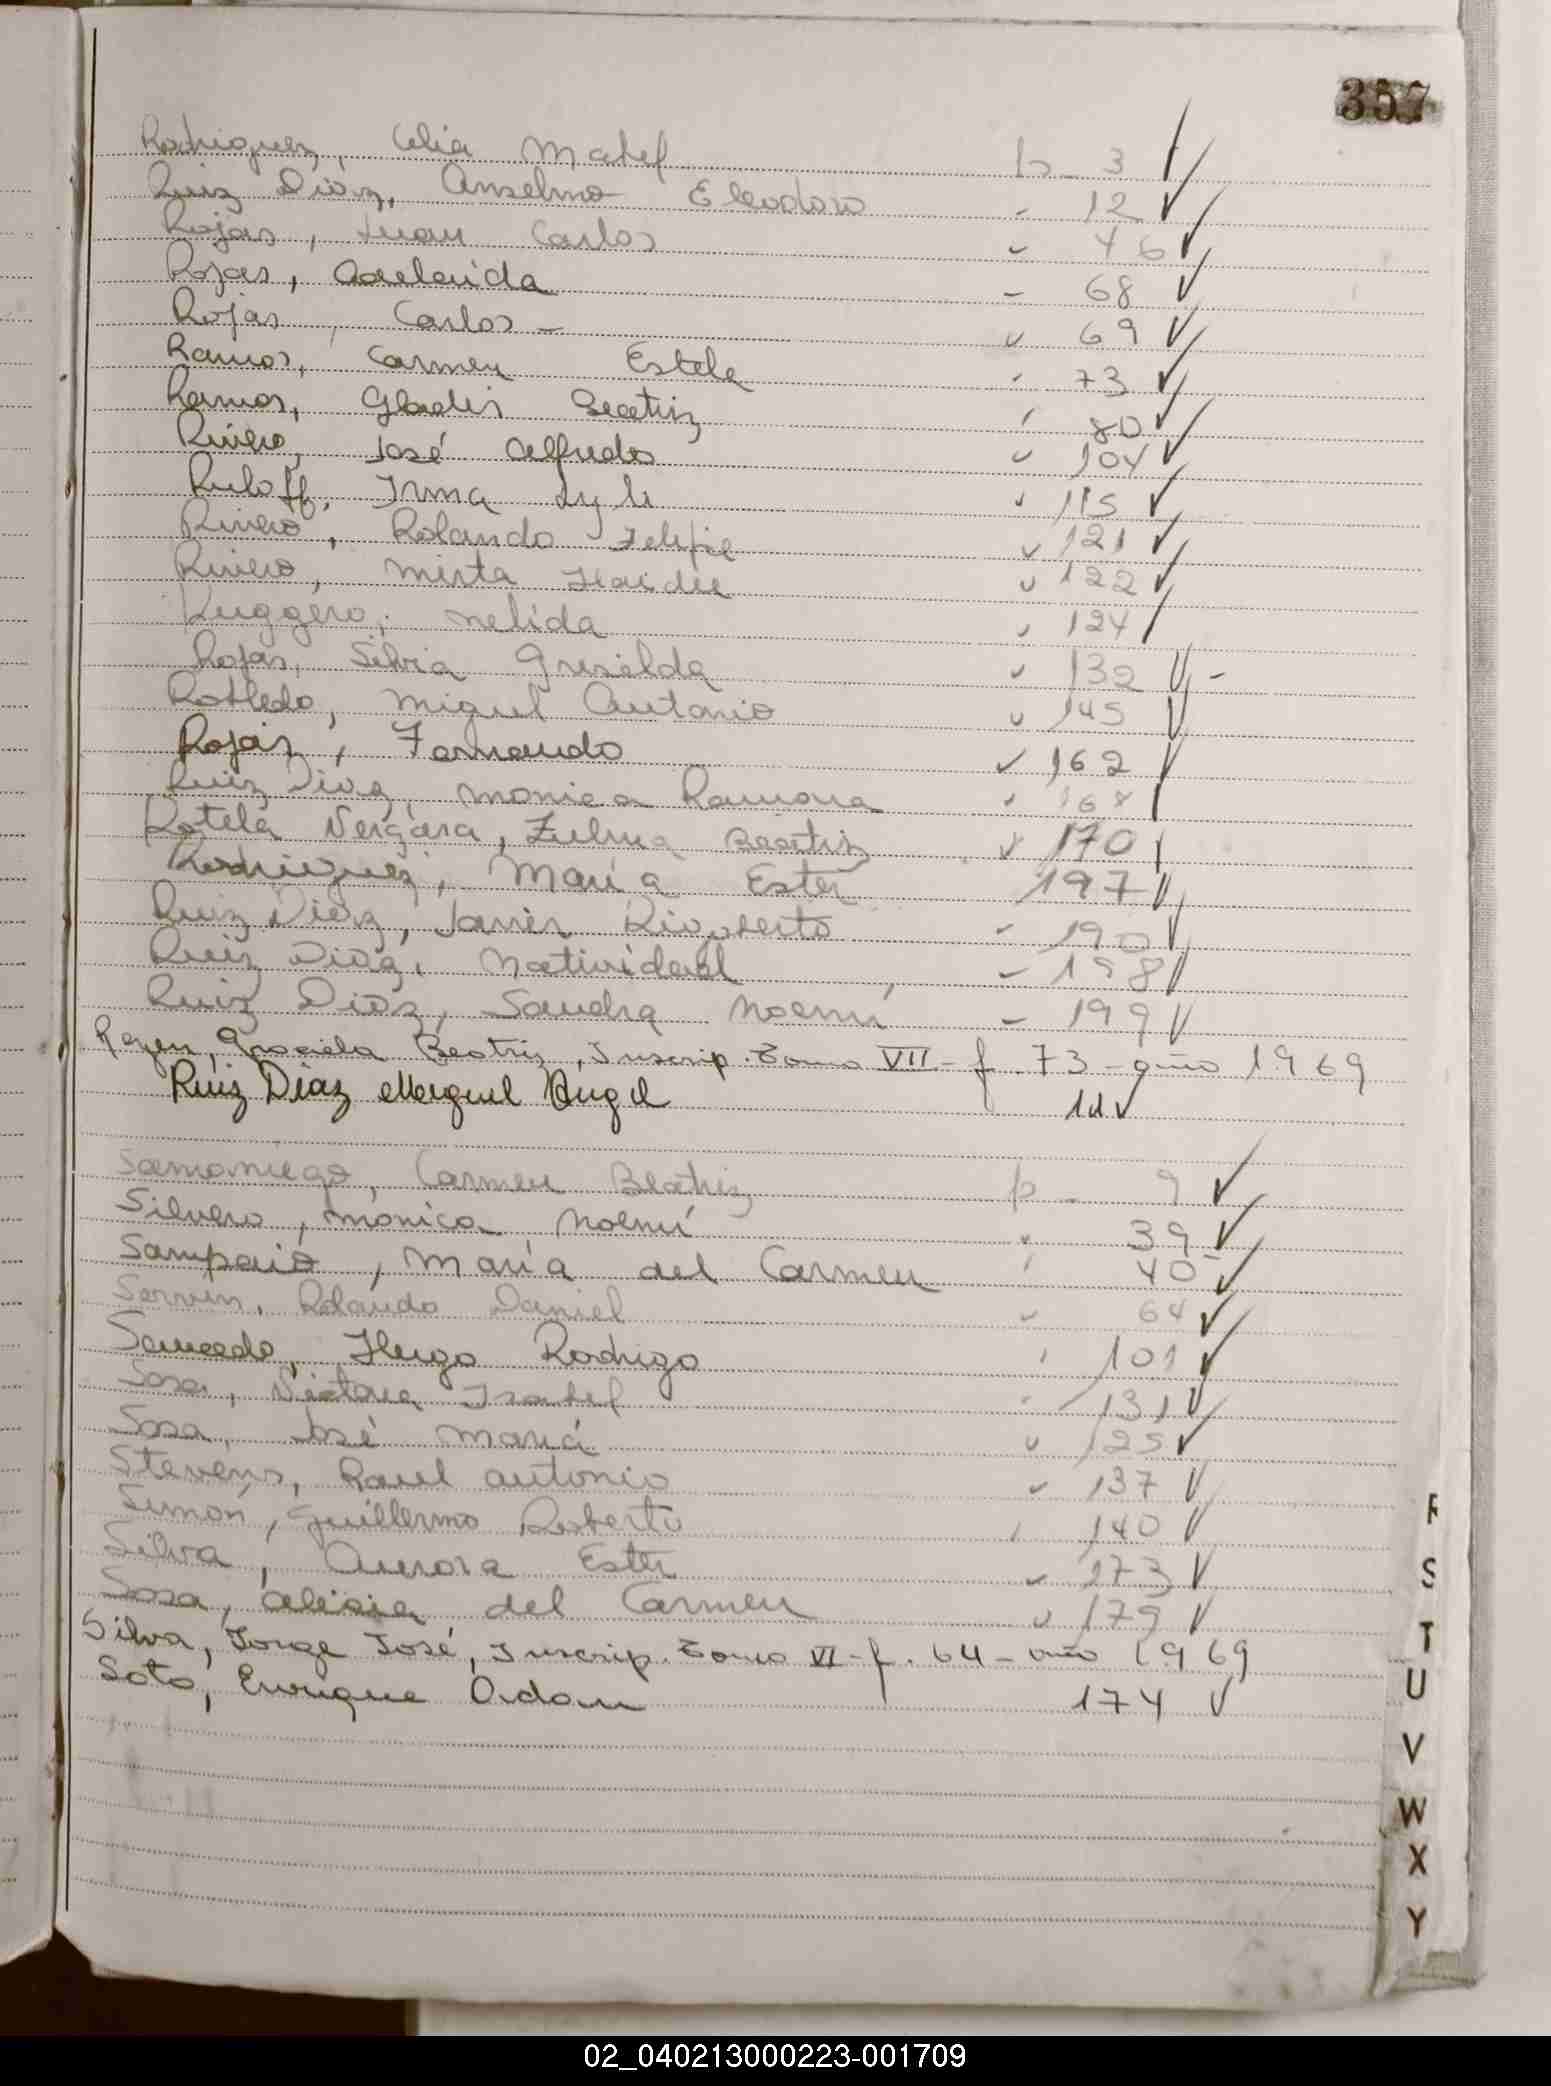 357
Rodriguez, Celia Mabel p - 3 ✓
Ruiz Diaz, Anselmo Eleodoro - 12 ✓
Rojas, Juan Carlos 46 ✓
Rojas, Adelaida - 68 ✓
Rojas, Carlos - 69 ✓
Ramos, Carmen Estela 73 ✓
Ramos, Gladis Beatriz 80 ✓
Rivero, José Alfredo 104 ✓
Ruloff, Irma 115 ✓
Rivero, Rolando Felipe 121 ✓
Rivero, Mirta Haidee 122 ✓
Ruggero, Nelida 124 /
Rojas, Silvia Griselda 132 ✓ -
Robledo, Miguel Antonio 145 ✓
Rojas, Fernando 162
Ruiz Diaz, Monica Ramona 168
Rotela Vergara, Zulma Beatriz 170
Rodriguez, María Ester 197 ✓
Ruiz Diaz, Javier Rigoberto - 190 ✓
Ruiz Diaz, Natividad - 198 ✓
Ruiz Diaz, Sandra Noemí - 199 ✓
Graciela Beatriz, Inscrip. Tomo VII - f. 73 - año 1969
Ruiz Diaz Miguel Angel 11 ✓
Samaniego, Carmen Beatriz p - 9 ✓
Silvero, Monica Noemí 39 ✓
Sampaio, María del Carmen 40 ✓
Servin, Rolando Daniel 64 ✓
Saucedo, Hugo Rodrigo 101 ✓
Sosa, Victoria Isabel 131 ✓
Sosa, José María 125 ✓
Stevens, Raul Antonio 137 ✓
Simón, Guillermo Roberto 140 ✓
Silva, Aurora Ester 173 ✓
Sosa, Alicia del Carmen 179 ✓
Silva, Jorge José, Inscrip. Tomo VI - f. 64 - año 1969
Soto, Enrique Adam 174 ✓
R
S
T
U
V
W
X
Y
02_040213000223-001709